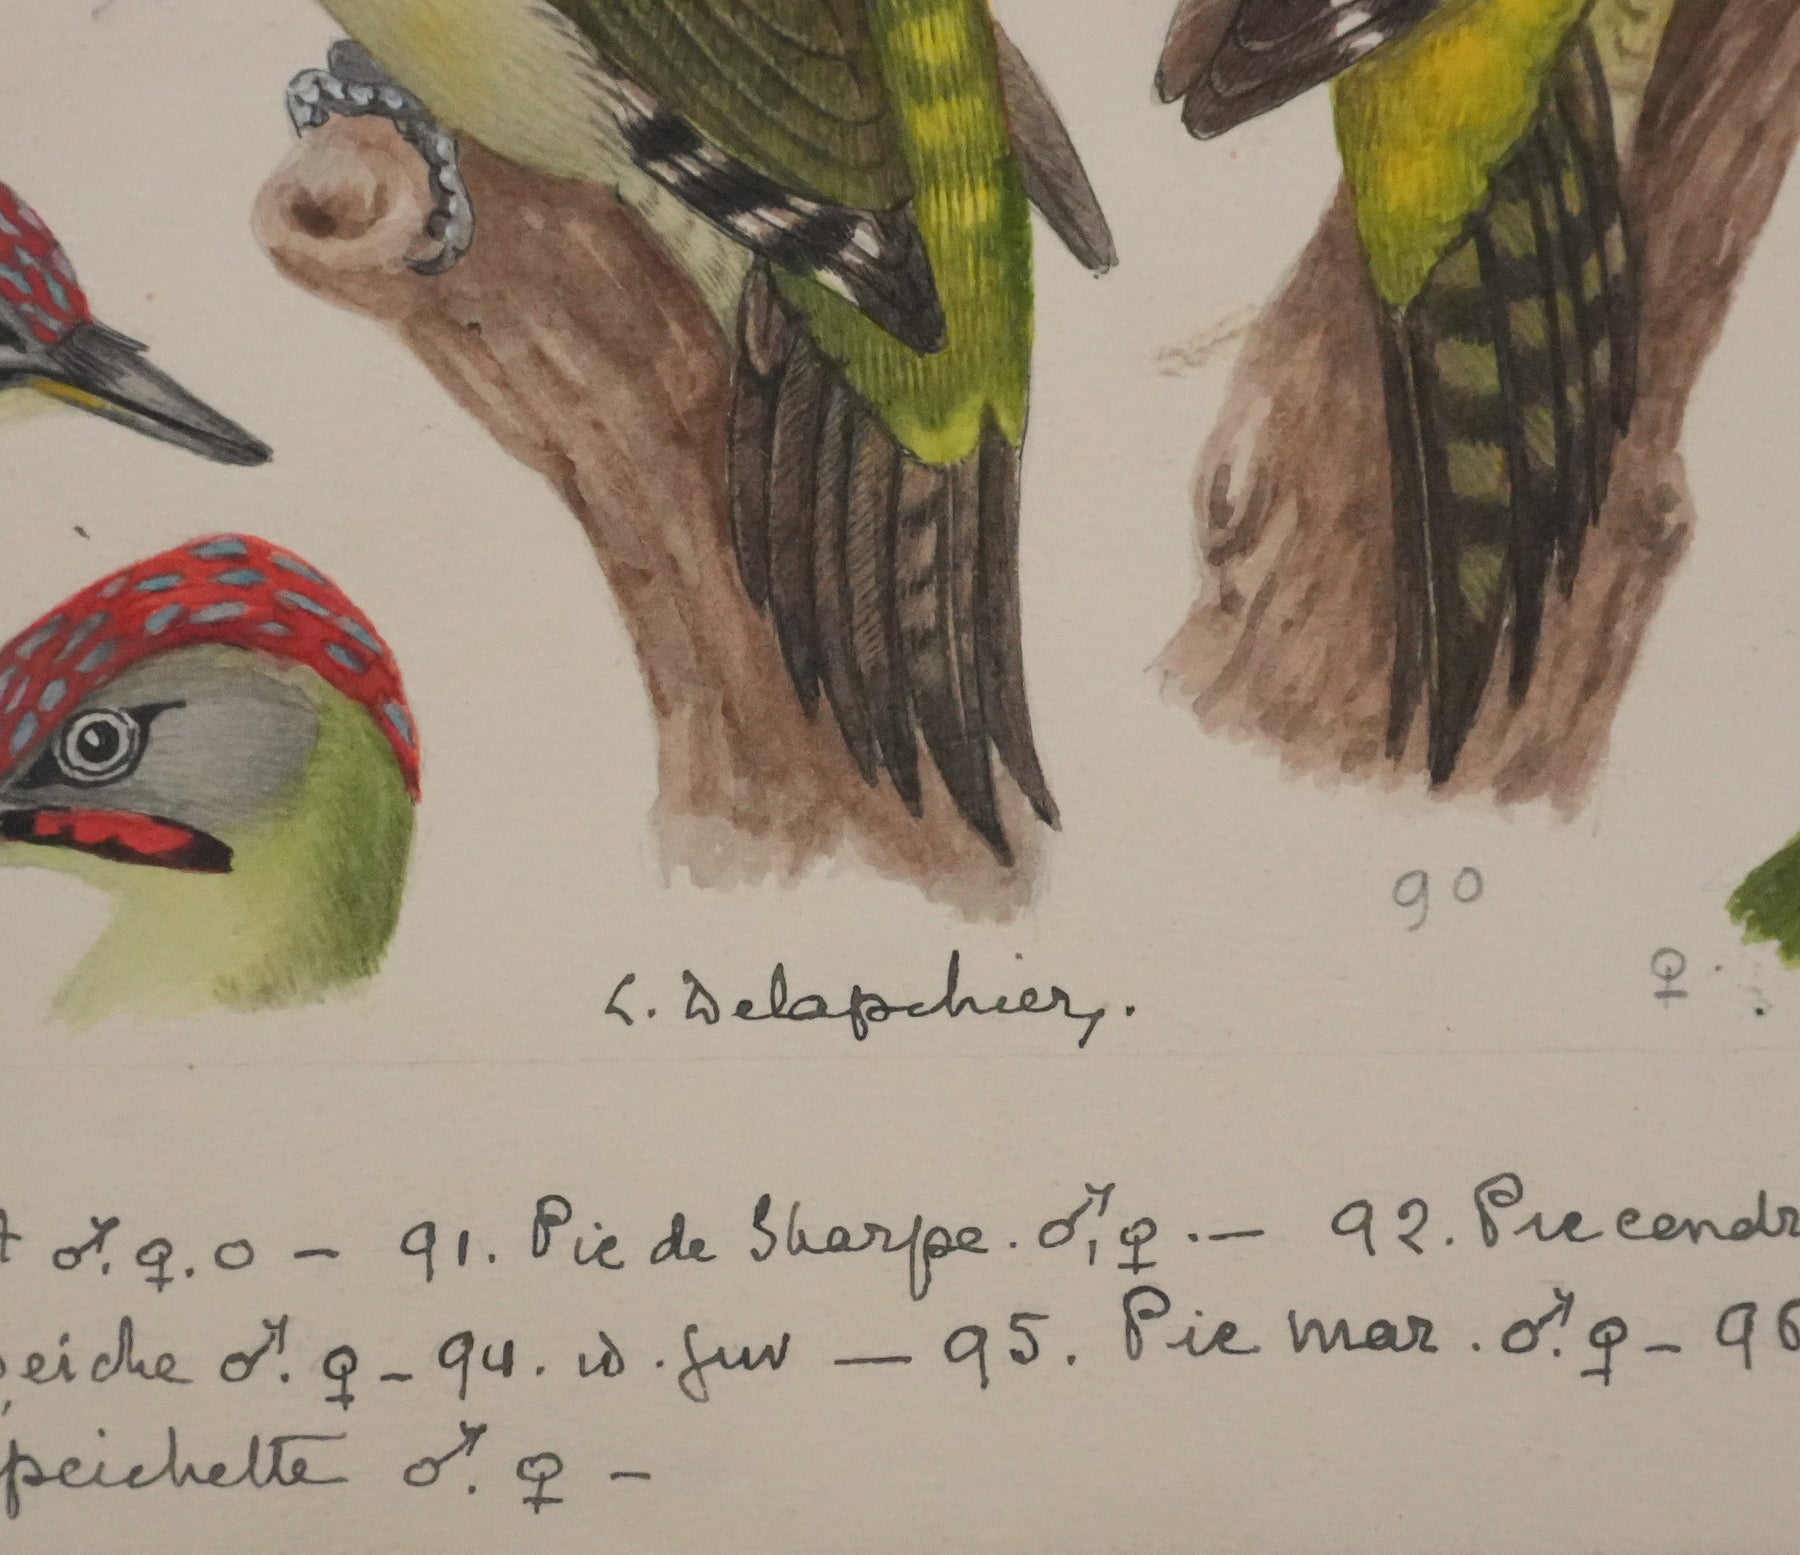 90
♀
L. Delapchier.
♂. ♀. o – 91. Pic de Sharpe. ♂, ♀. – 92. Pic cendr
peiche ♂. ♀ – 94. id. juv — 95. Pic mar. ♂. ♀ – 96
peichette ♂. ♀ –